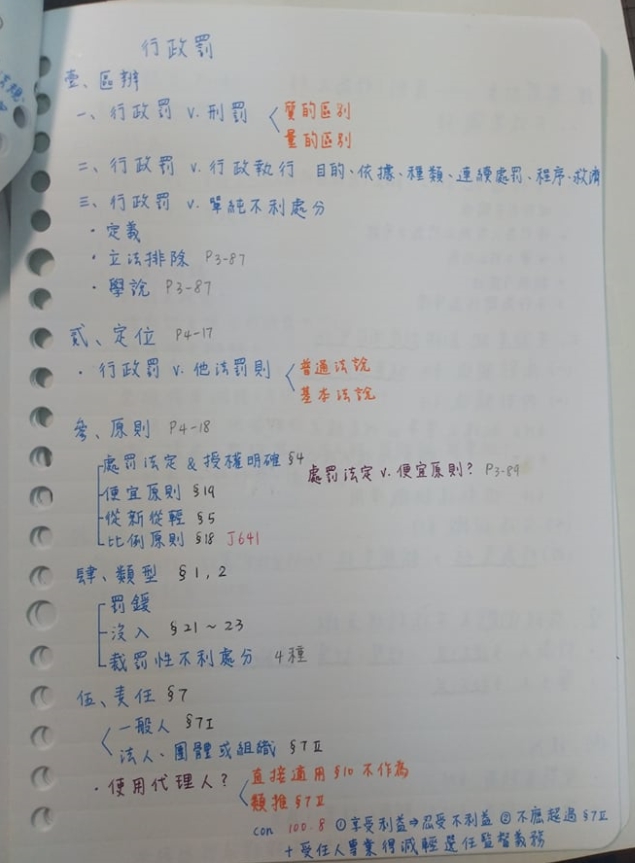 行政罰
壹、區辨
一、行政罰 v. 刑罰 質的區別
量的區別
二、行政罰 v. 行政執行 目的、依據、種類、連續處罰、程序、救濟
三、行政罰 v. 單純不利處分
・定義
・立法排除 P3-87
・學說 P3-87
貳、定位 P4-17
・行政罰 v. 他法罰則 普通法說
基本法說
參、原則 P4-18
處罰法定 & 授權明確 §4
處罰法定 v. 便宜原則? P3-89
便宜原則 §19
從新從輕 §5
比例原則 §18 J641
肆、類型 §1, 2
罰鍰
沒入 §21~23
裁罰性不利處分 4種
伍、責任 §7
一般人 §7I
法人、團體或組織 §7II
・使用代理人? 直接適用 §10 不作為
類推 §7II
con 100.8 ①享受利益⇒忍受不利益 ②不應超過 §7II
+ 受任人專業得減輕選任監督義務